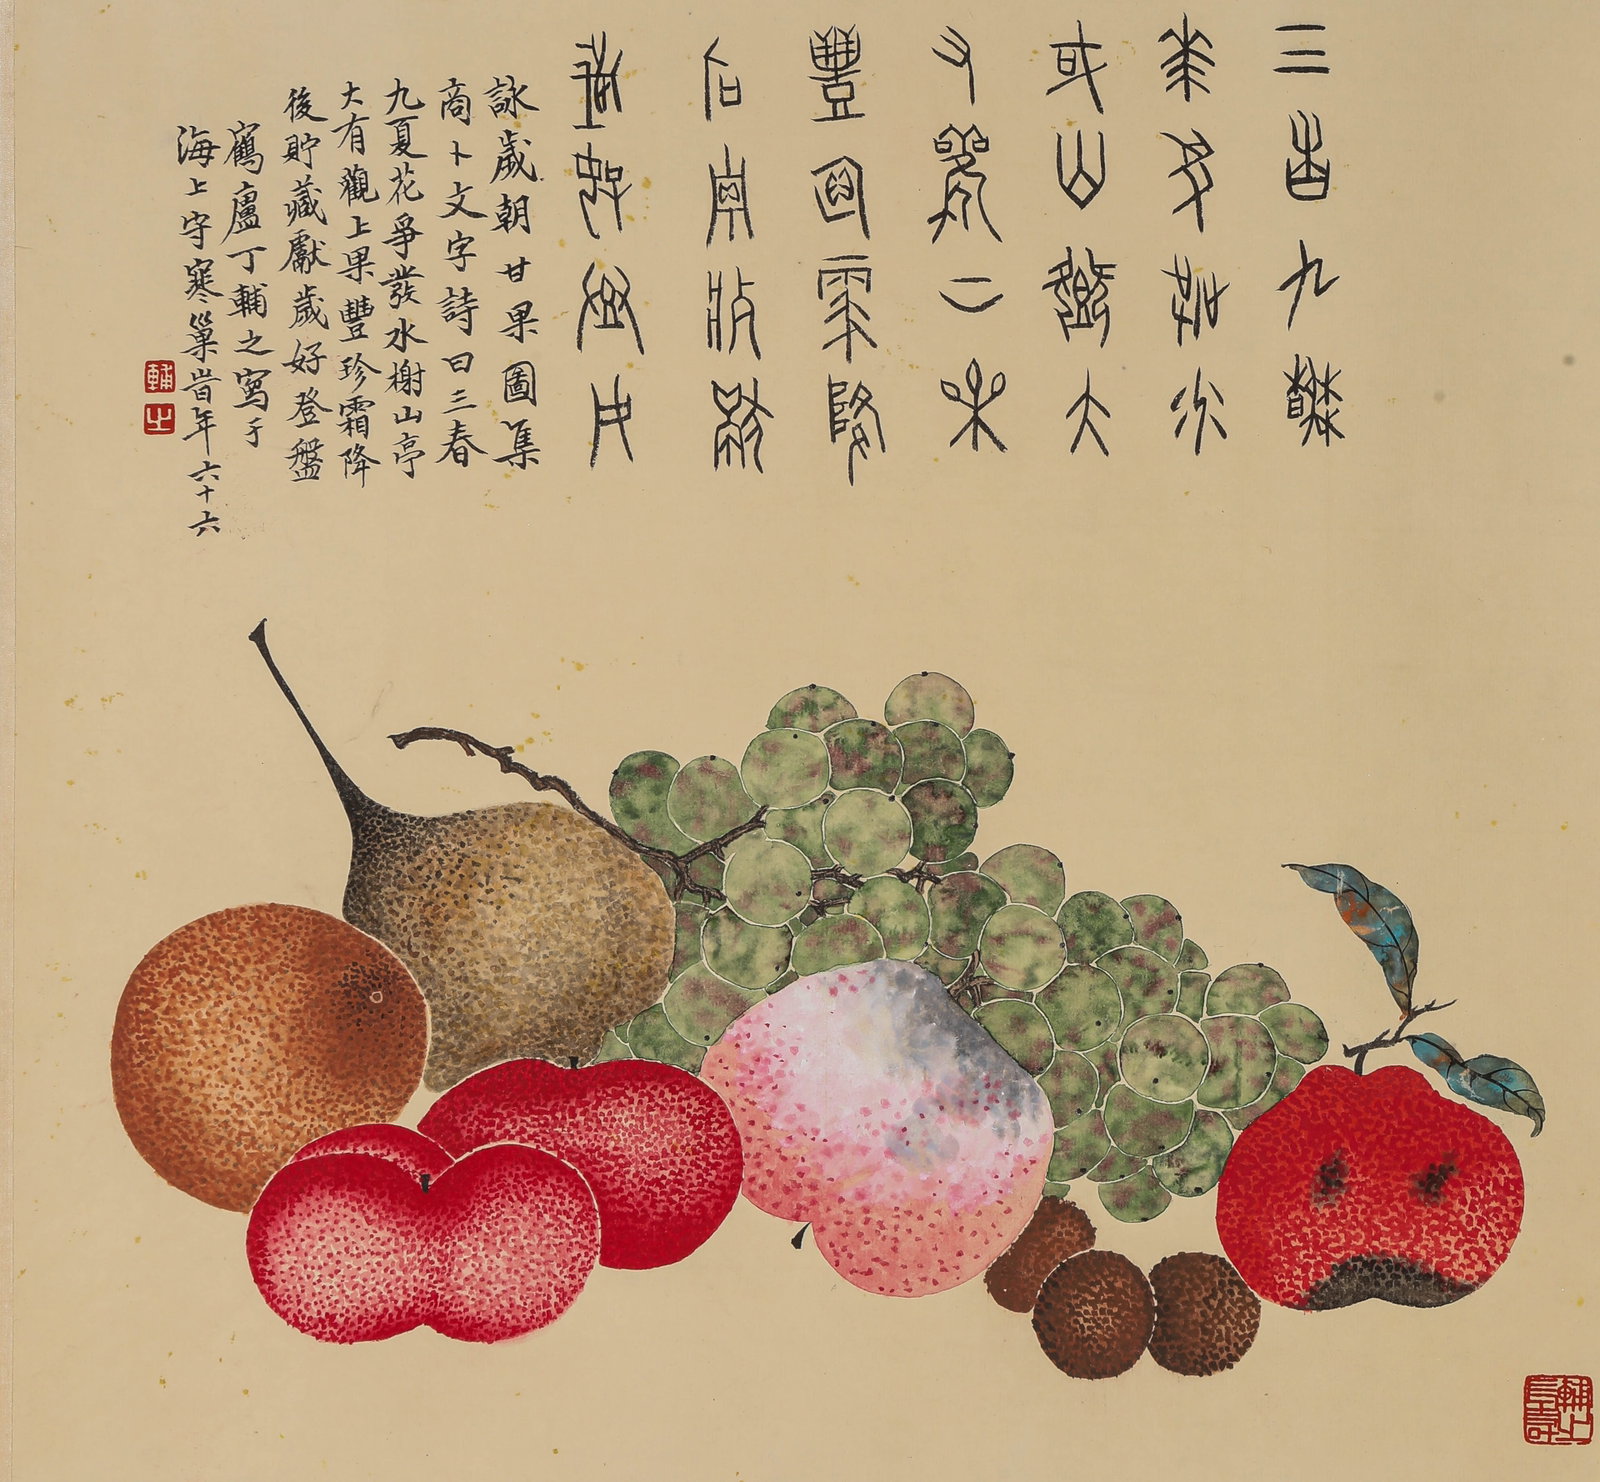 三春九夏
花爭發水
榭山亭大
有觀上果
豐珍霜降
後貯藏獻
歲好登盤
詠歲朝甘果圖集
商卜文字詩曰三春
九夏花爭發水榭山亭
大有觀上果豐珍霜降
後貯藏獻歲好登盤
鶴廬丁輔之寫于
海上守寒巢旹年六十六
輔
之
輔之
長壽